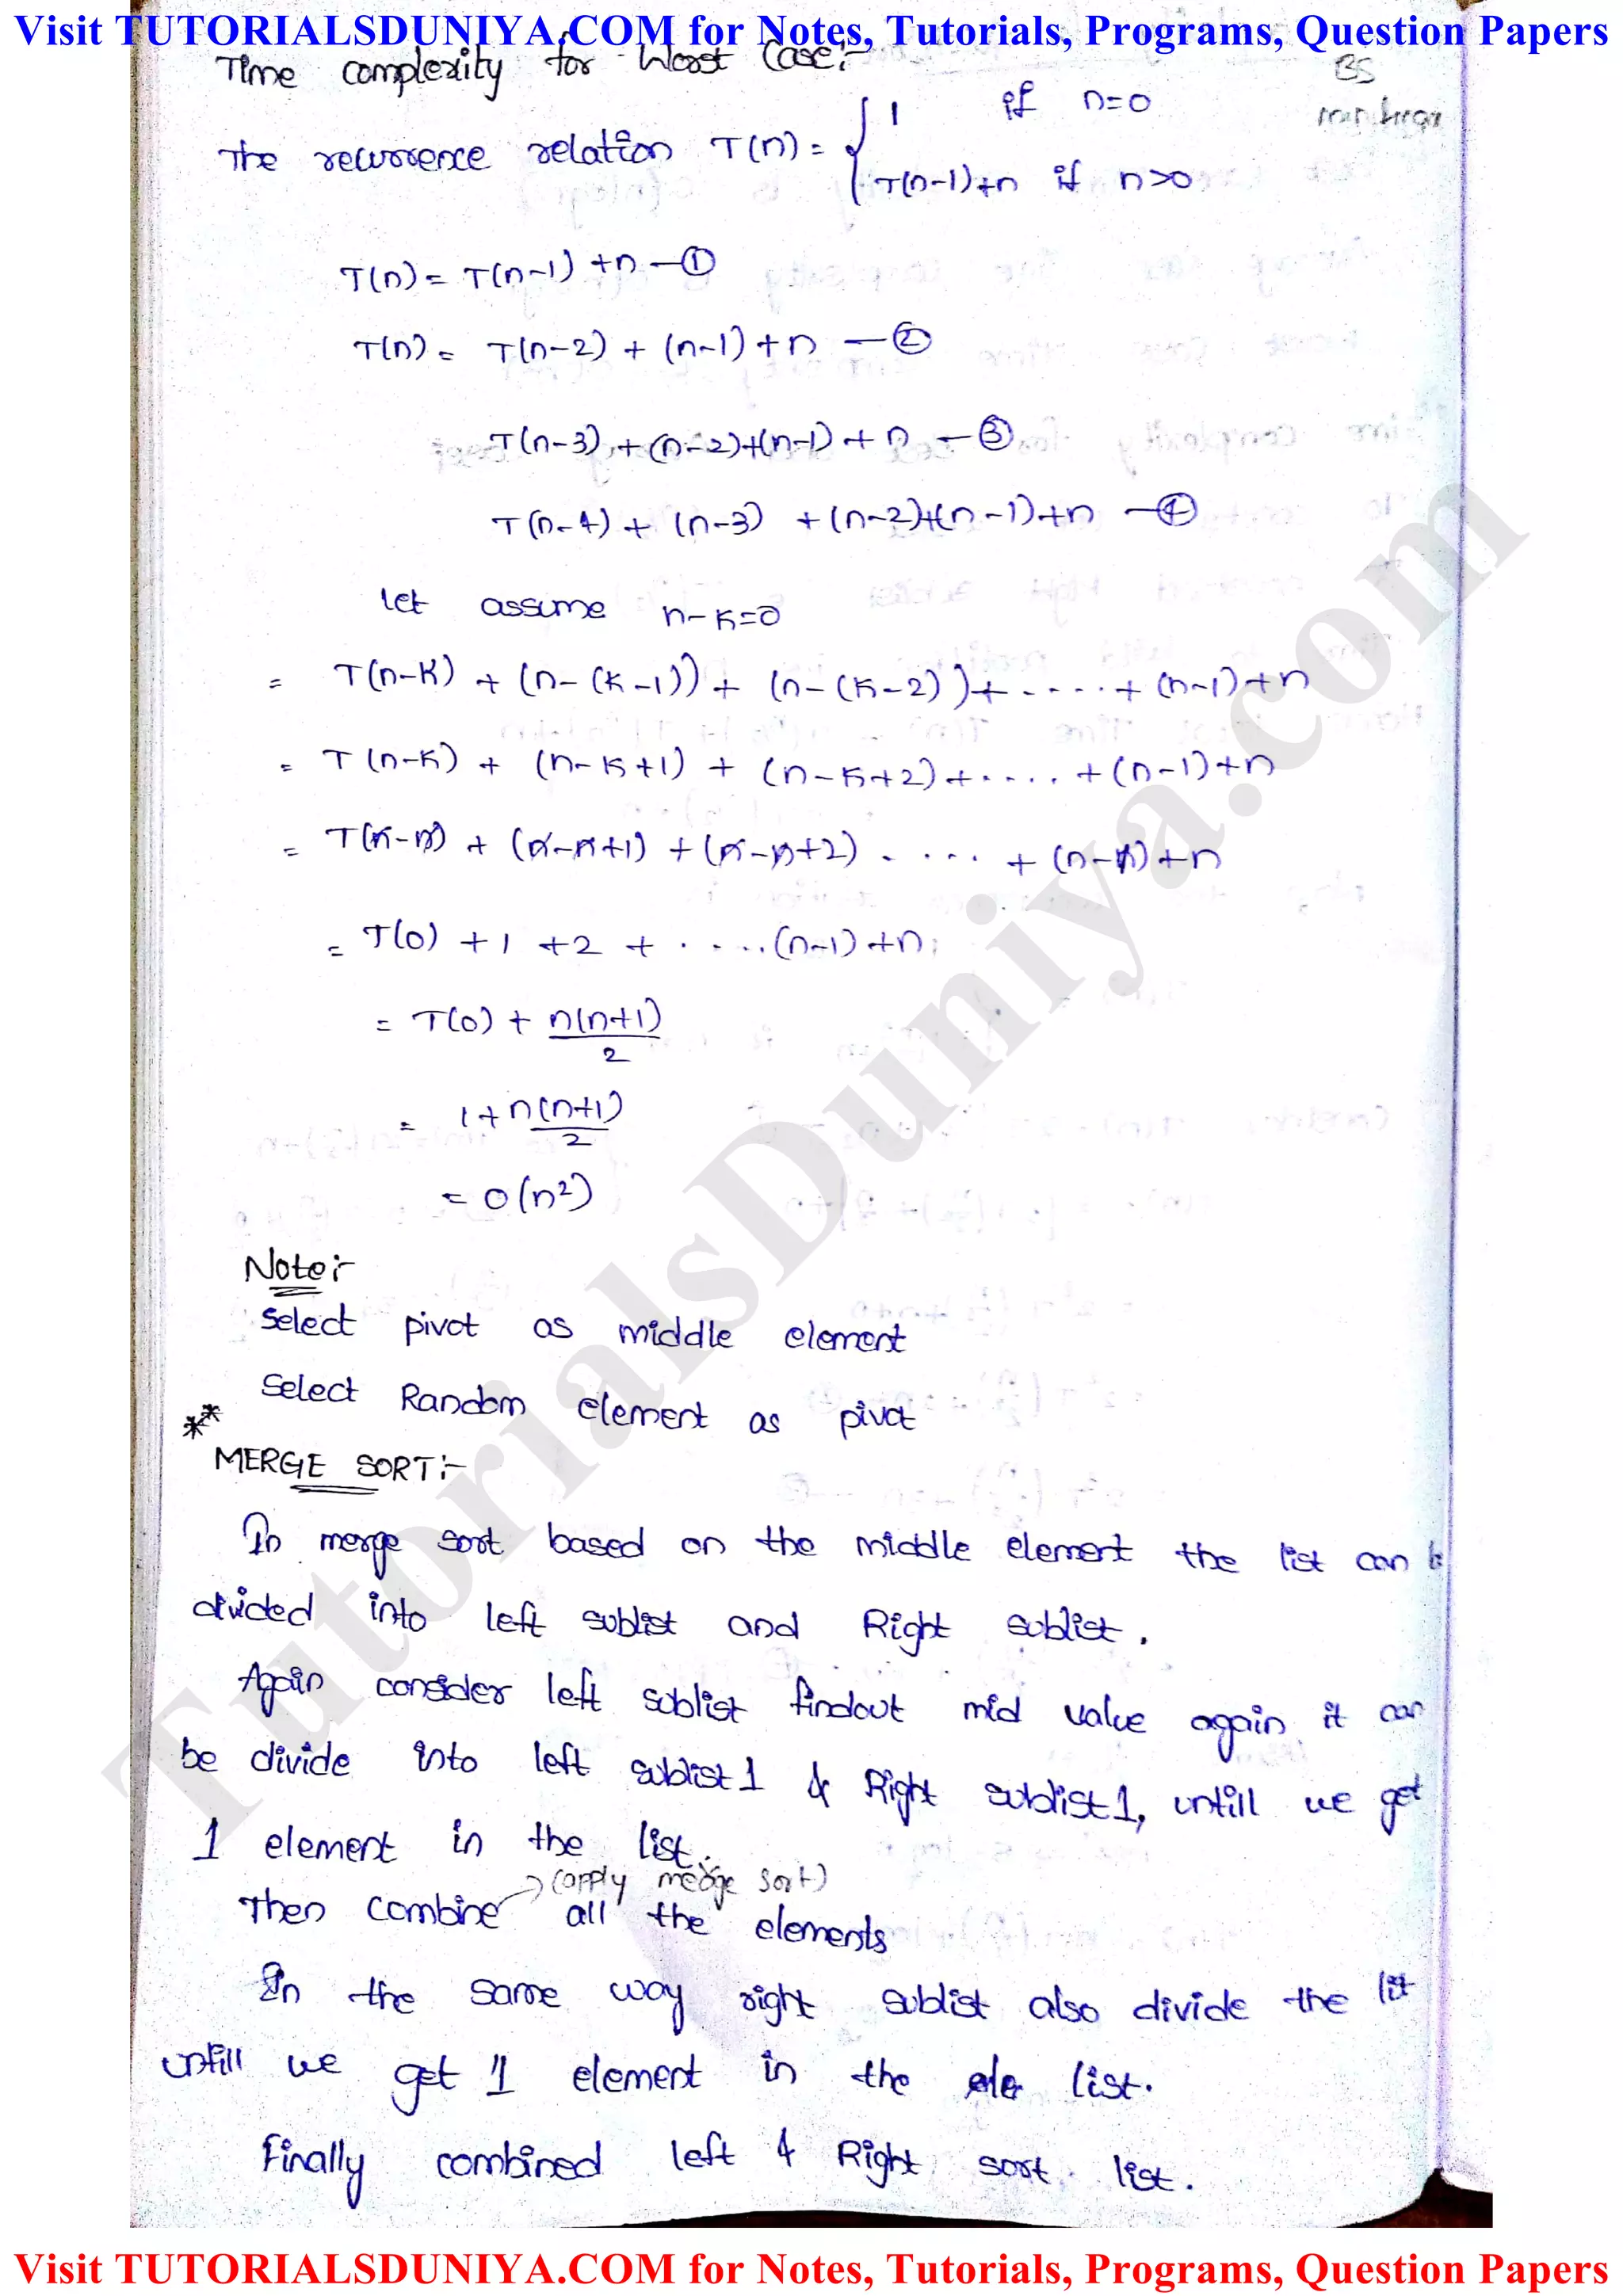 Visit TUTORIALSDUNIYA.COM for Notes, Tutorials, Programs, Question Papers
Time complexity for Worst Case:-
BS
The recurrence relation T(n) = { 1 if n=0
T(n-1)+n if n>0
T(n) = T(n-1) +n —①
T(n) = T(n-2) + (n-1) + n —②
T(n-3) + (n-2)+(n-1) + n —③
T(n-4) + (n-3) + (n-2)+(n-1)+n —④
let assume n-k=0
= T(n-k) + (n-(k-1)) + (n-(k-2)) + ..... + (n-1)+n
= T(n-k) + (n-k+1) + (n-k+2) + ..... + (n-1)+n
= T(n-n) + (n-n+1) + (n-n+2) . .... + (n-1)+n
= T(0) + 1 +2 + . ....(n-1) +n
= T(0) + n(n+1)/2
= 1 + n(n+1)/2
= O(n²)
Note:-
Select pivot as middle element
Select Random element as pivot
** MERGE SORT:-
In merge sort based on the middle element the list can be
divided into left sublist and Right sublist.
Again consider left sublist findout mid value again it can
be divide into left sublist 1 & Right sublist 1, untill we get
1 element in the list.
→ (apply merge sort)
Then combine all the elements
In the same way right sublist also divide the list
untill we get 1 element in the ele list.
Finally combined left & Right sort list.
TutorialsDuniya.com
Visit TUTORIALSDUNIYA.COM for Notes, Tutorials, Programs, Question Papers